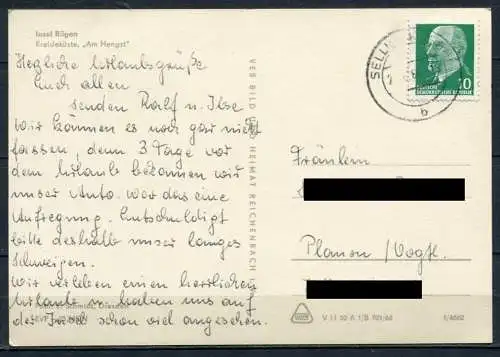 Insel Rügen
Kreideküste, „Am Hengst"
Herzliche Urlaubsgrüße
Euch allen
senden Ralf u. Ilse
Wir können es noch gar nicht
fassen, denn 3 Tage vor
dem Urlaub bekamen wir
unser Auto. War das eine
Aufregung. Entschuldigt
bitte deshalb unser langes
Schweigen.
Wir verleben einen herrlichen
Urlaub u. haben uns auf
der Insel schon viel angesehen.
VEB BILD HEIMAT REICHENBACH
SELLIN
b
10
DEUTSCHE
DEMOKRATISCHE REPUBLIK
Fräulein
Plauen/Vogtl.
V 11 50 A 1/B